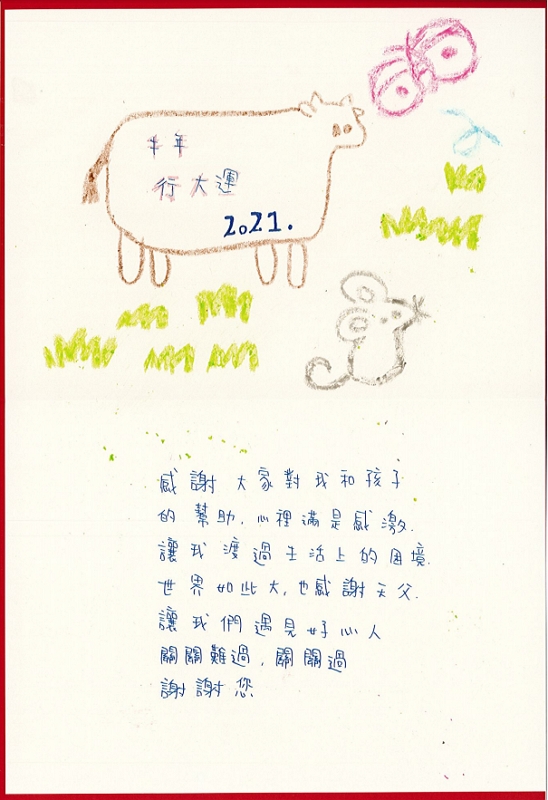 牛年
行大運
2021.
感謝大家對我和孩子
的幫助,心裡滿是感激.
讓我渡過生活上的困境.
世界如此大,也感謝天父.
讓我們遇見好心人
關關難過,關關過
謝謝您